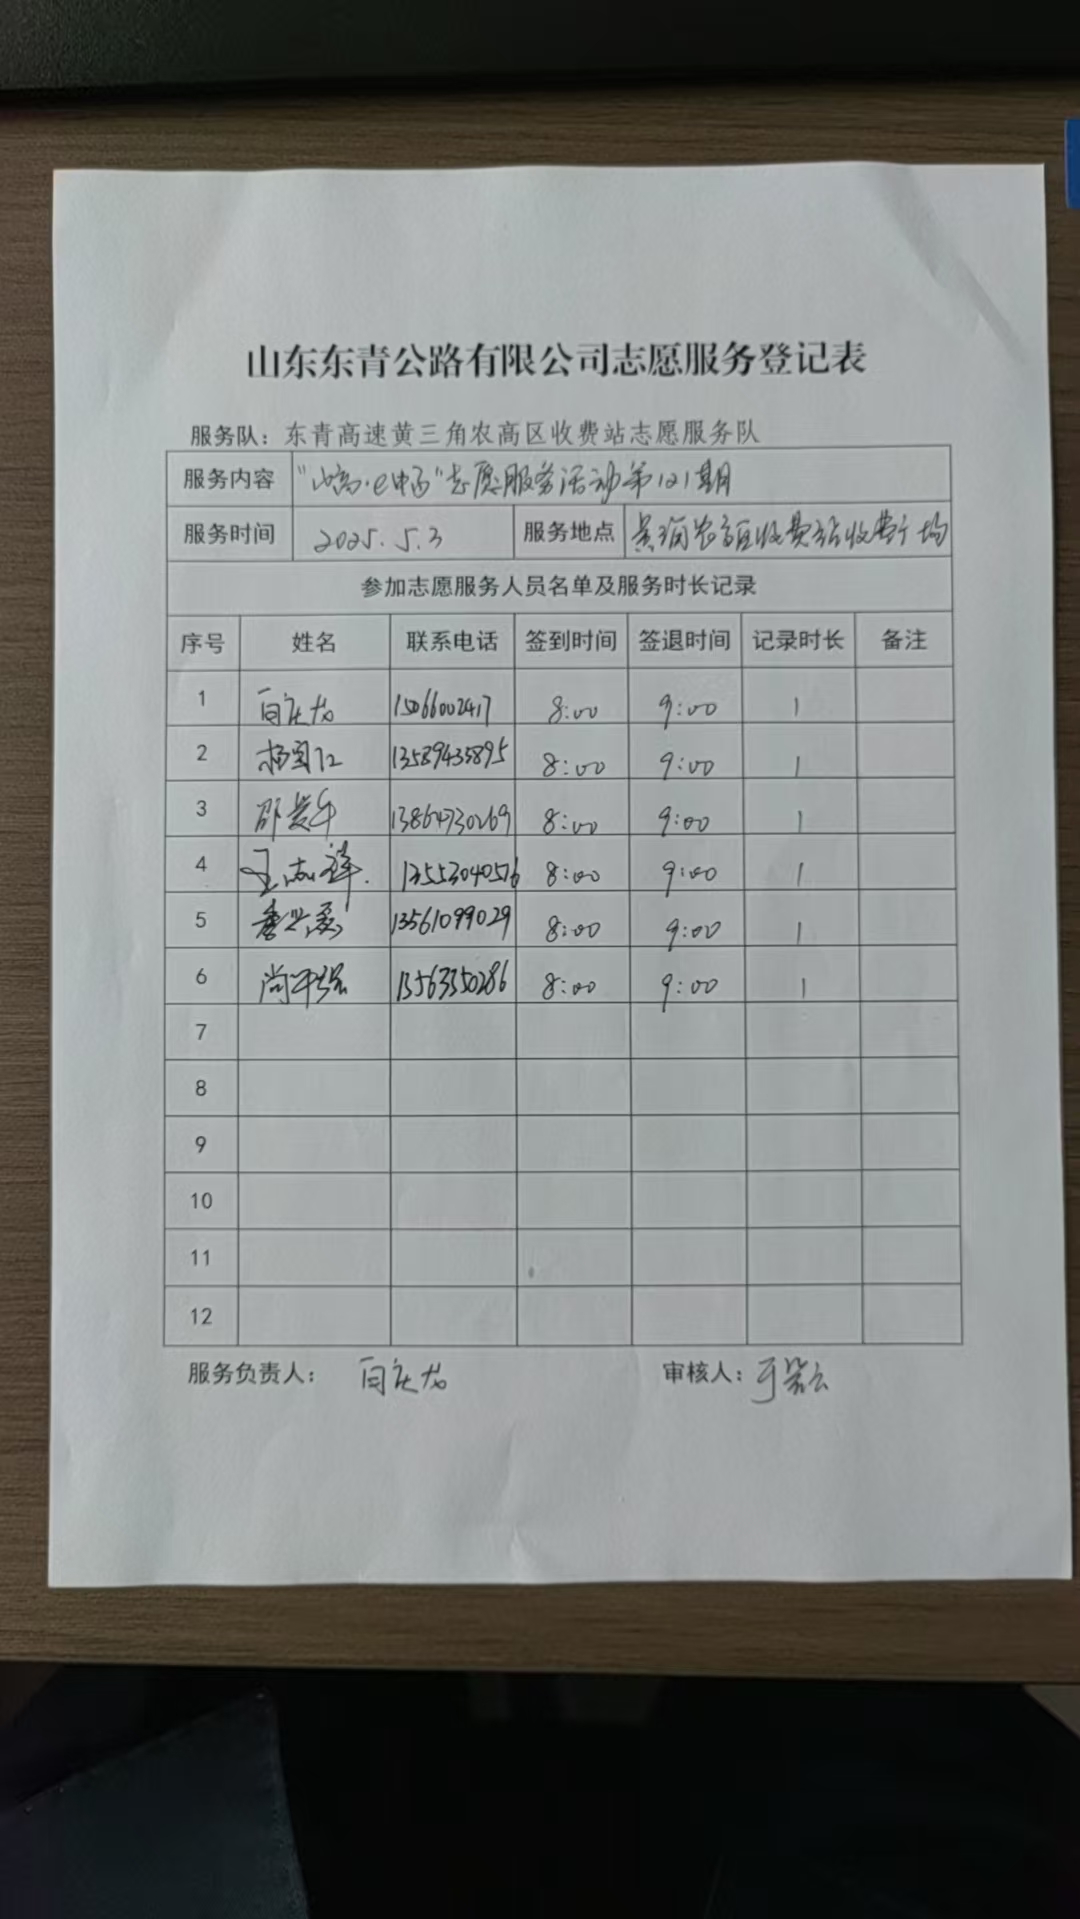 山东东青公路有限公司志愿服务登记表
服务队：东青高速黄三角农高区收费站志愿服务队
服务内容 "山高·e中子"志愿服务活动第121期
服务时间 2025.5.3 服务地点 农高区收费站收费广场
参加志愿服务人员名单及服务时长记录
序号 姓名 联系电话 签到时间 签退时间 记录时长 备注
1 15066002417 8:00 9:00 1
2 杨图江 13589435895 8:00 9:00 1
3 邵长年 13864730269 8:00 9:00 1
4 王志祥. 13553040516 8:00 9:00 1
5 13561099029 8:00 9:00 1
6 尚平强 13563350286 8:00 9:00 1
7
8
9
10
11
12
服务负责人： 审核人：于